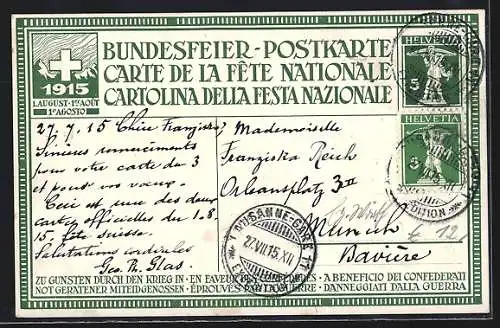 BUNDESFEIER-POSTKARTE
CARTE DE LA FÊTE NATIONALE
CARTOLINA DELLA FESTA NAZIONALE
1915
1. AUGUST - 1ER AOÛT
1º AGOSTO
HELVETIA
5
HELVETIA
5
27.7.15 Chère Franziska,
Sincères remerciements
pour votre carte du 3
et pour vos voeux.
Ceci est une des deux
cartes officielles du 1.8.
15. fête suisse.
Salutations cordiales
Geo. Th. Glas.
Mademoiselle
Franziska Reich
Orleansplatz 3 II
Munich
Bavière
LAUSANNE-GARE
27.VII.15.XII
€ 12
ZU GUNSTEN DURCH DEN KRIEG IN
NOT GERATENER MITEIDGENOSSEN
EN FAVEUR
ÉPROUVÉS PAR LA GUERRE
A BENEFICIO DEI CONFEDERATI
DANNEGGIATI DALLA GUERRA